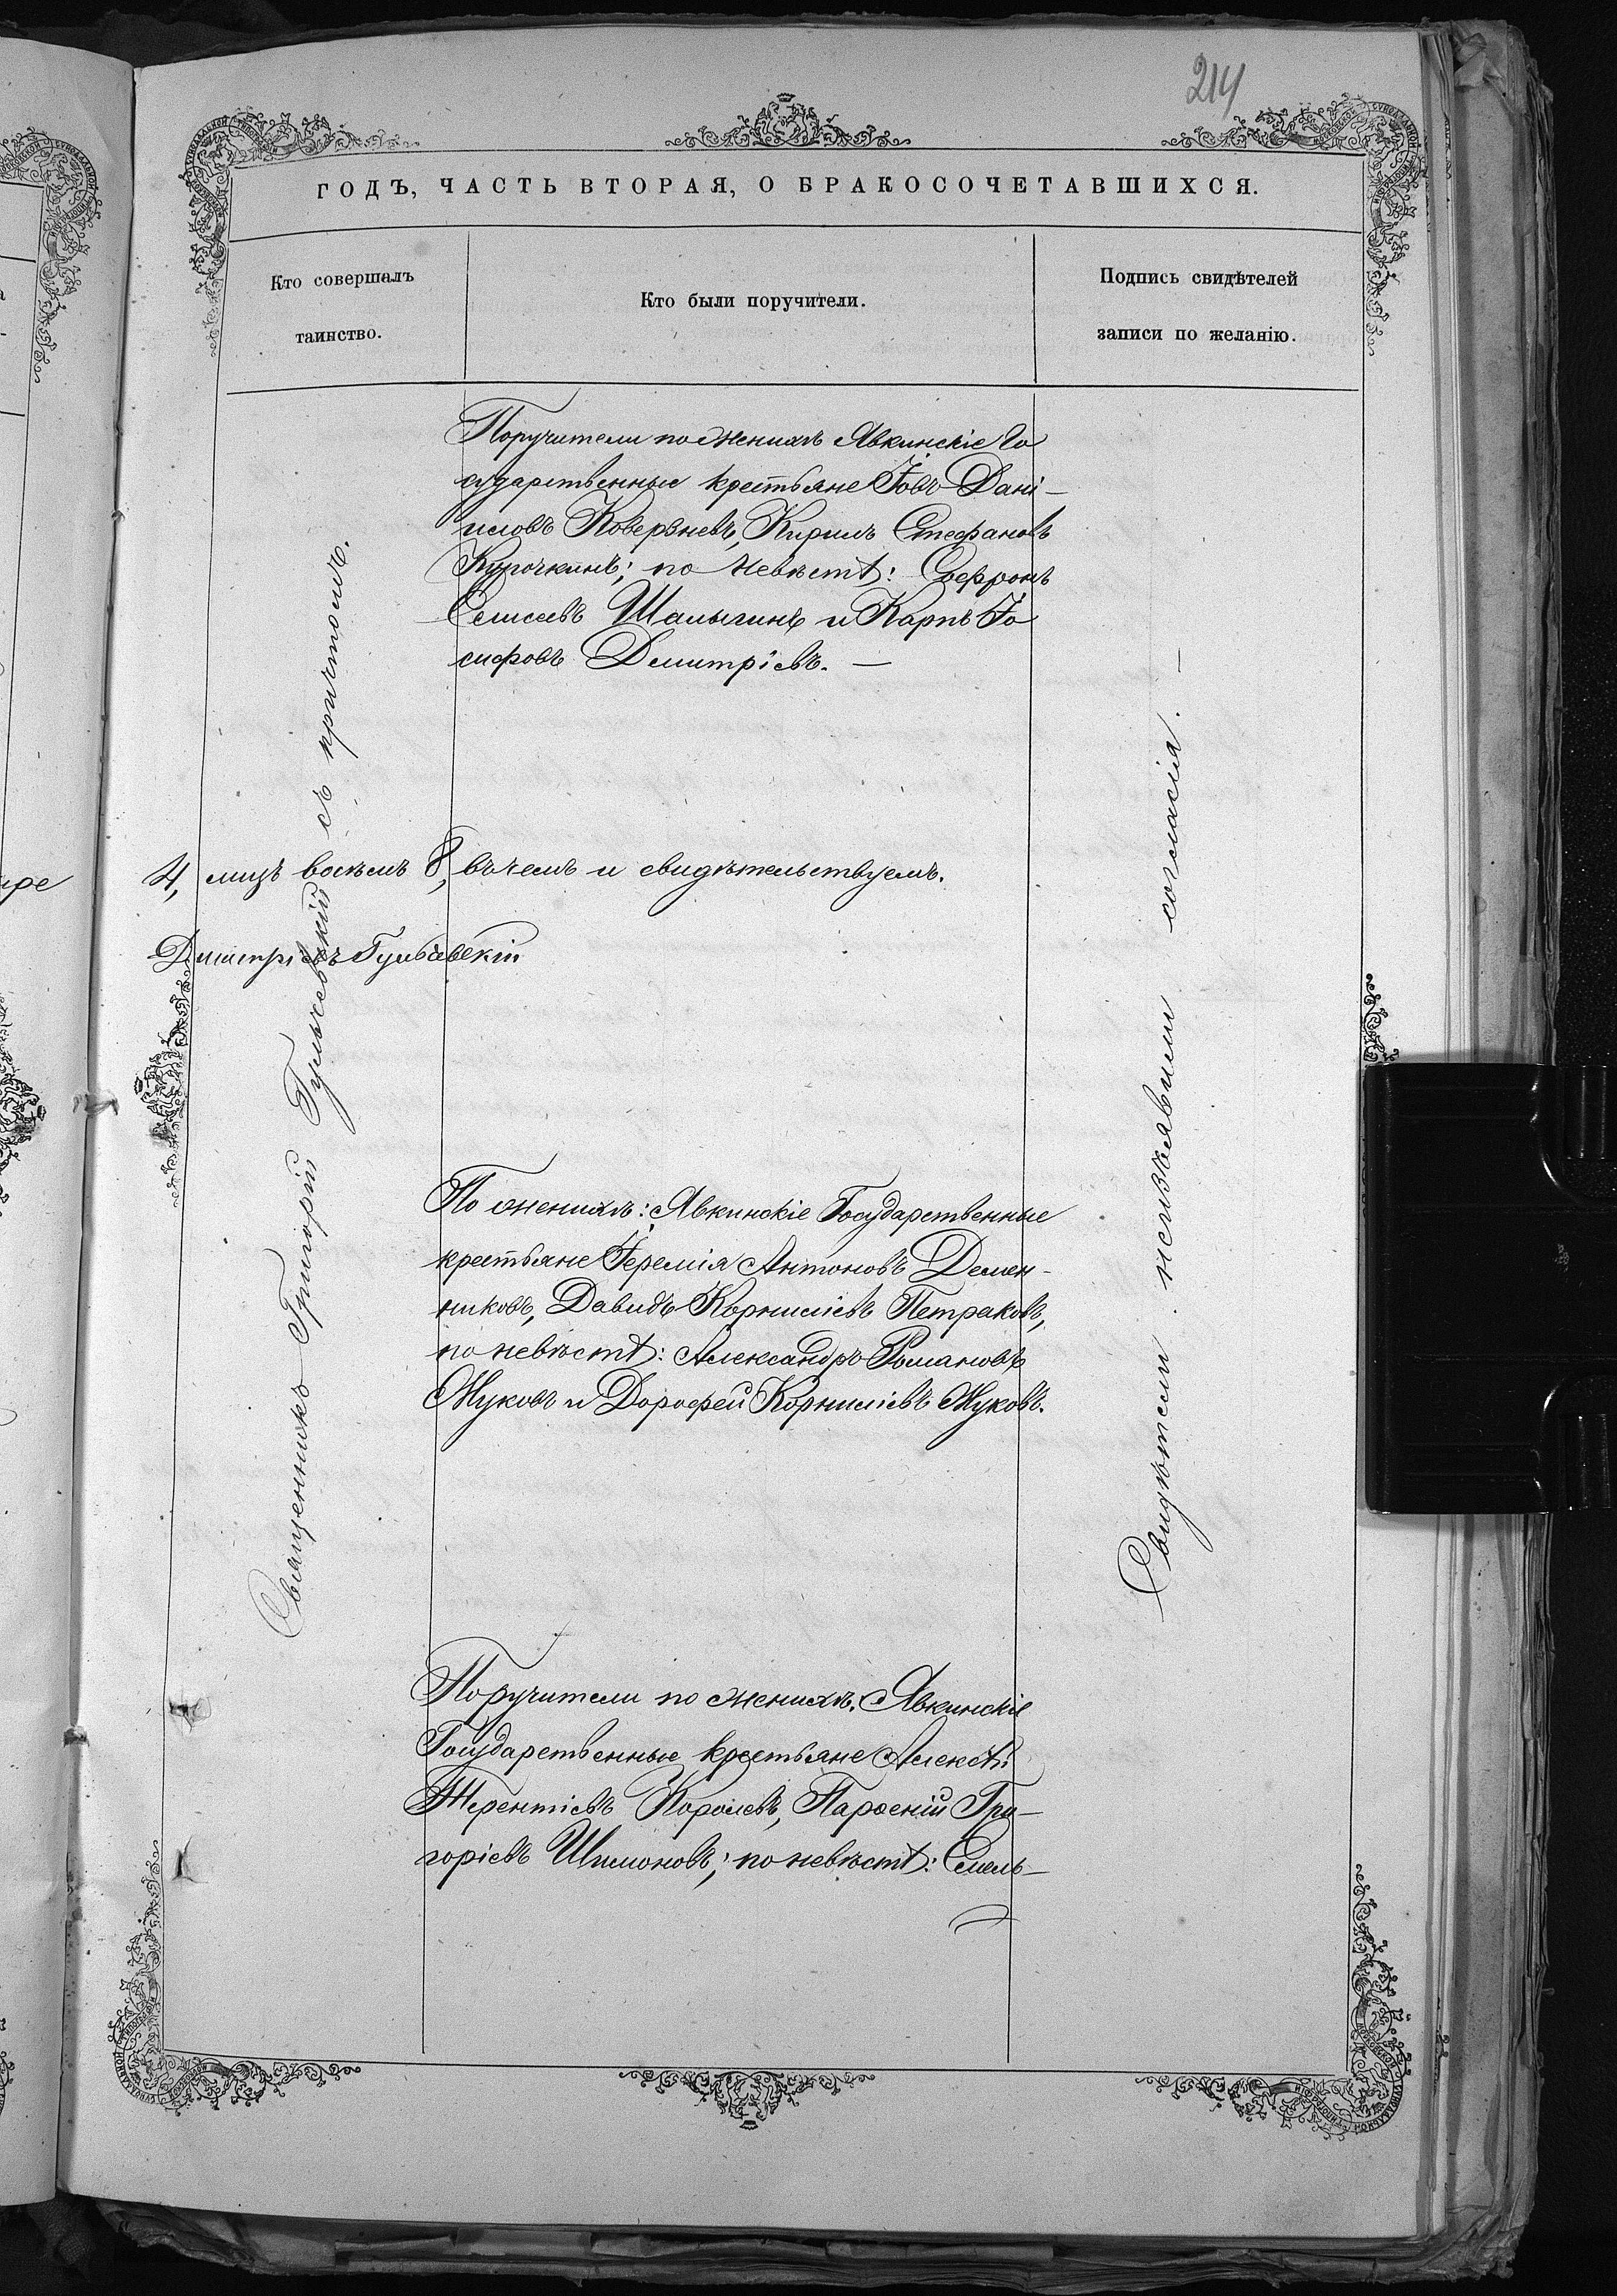 214
ГОДЪ, ЧАСТЬ ВТОРАЯ, О БРАКОСОЧЕТАВШИХСЯ.
Кто совершалъ
таинство.
Кто были поручители.
Подпись свидѣтелей
записи по желанію.
Священникъ Григорій Гульчевскій съ причтомъ.
Поручители по женихѣ Явкинскіе Го
сударственные крестьяне Іовъ Дані-
иловъ Коверзневъ, Кирилъ Стефановъ
Курочкинъ; по невѣстѣ: Софронъ
Елисеевъ Шалыгинъ и Карпъ Іо
сифовъ Димитріевъ. —
4, лицъ восемь 8, въ чемъ и свидѣтельствуемъ.
Димитріевъ Гульчевскій
По женихѣ: Явкинскіе Государственные
крестьяне Іеремія Антоновъ Демен-
никовъ, Давидъ Корниліевъ Петраковъ,
по невѣстѣ: Александръ Романовъ
Жуковъ и Дорофей Корниліевъ Жуковъ.
Поручители по женихѣ: Явкинскіе
Государственные крестьяне Алексѣй
Терентіевъ Королевъ, Парѳеній Гри-
горіевъ Шимоновъ; по невѣстѣ: Емель-
Свидѣтели неизъявили согласія. —